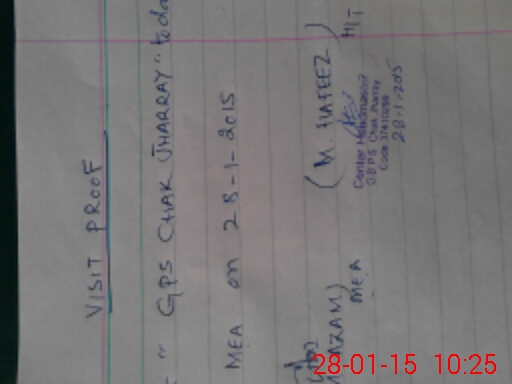 VISIT PROOF
" GPS CHAK JHARRAY" toda
MEA on 28-1-2015
(M. HAFEEZ)
H/T
Center Headmaster
GBPS Chak Jharray
Code 37410259
28-1-2015
AZAM)
MEA
28-01-15 10:25